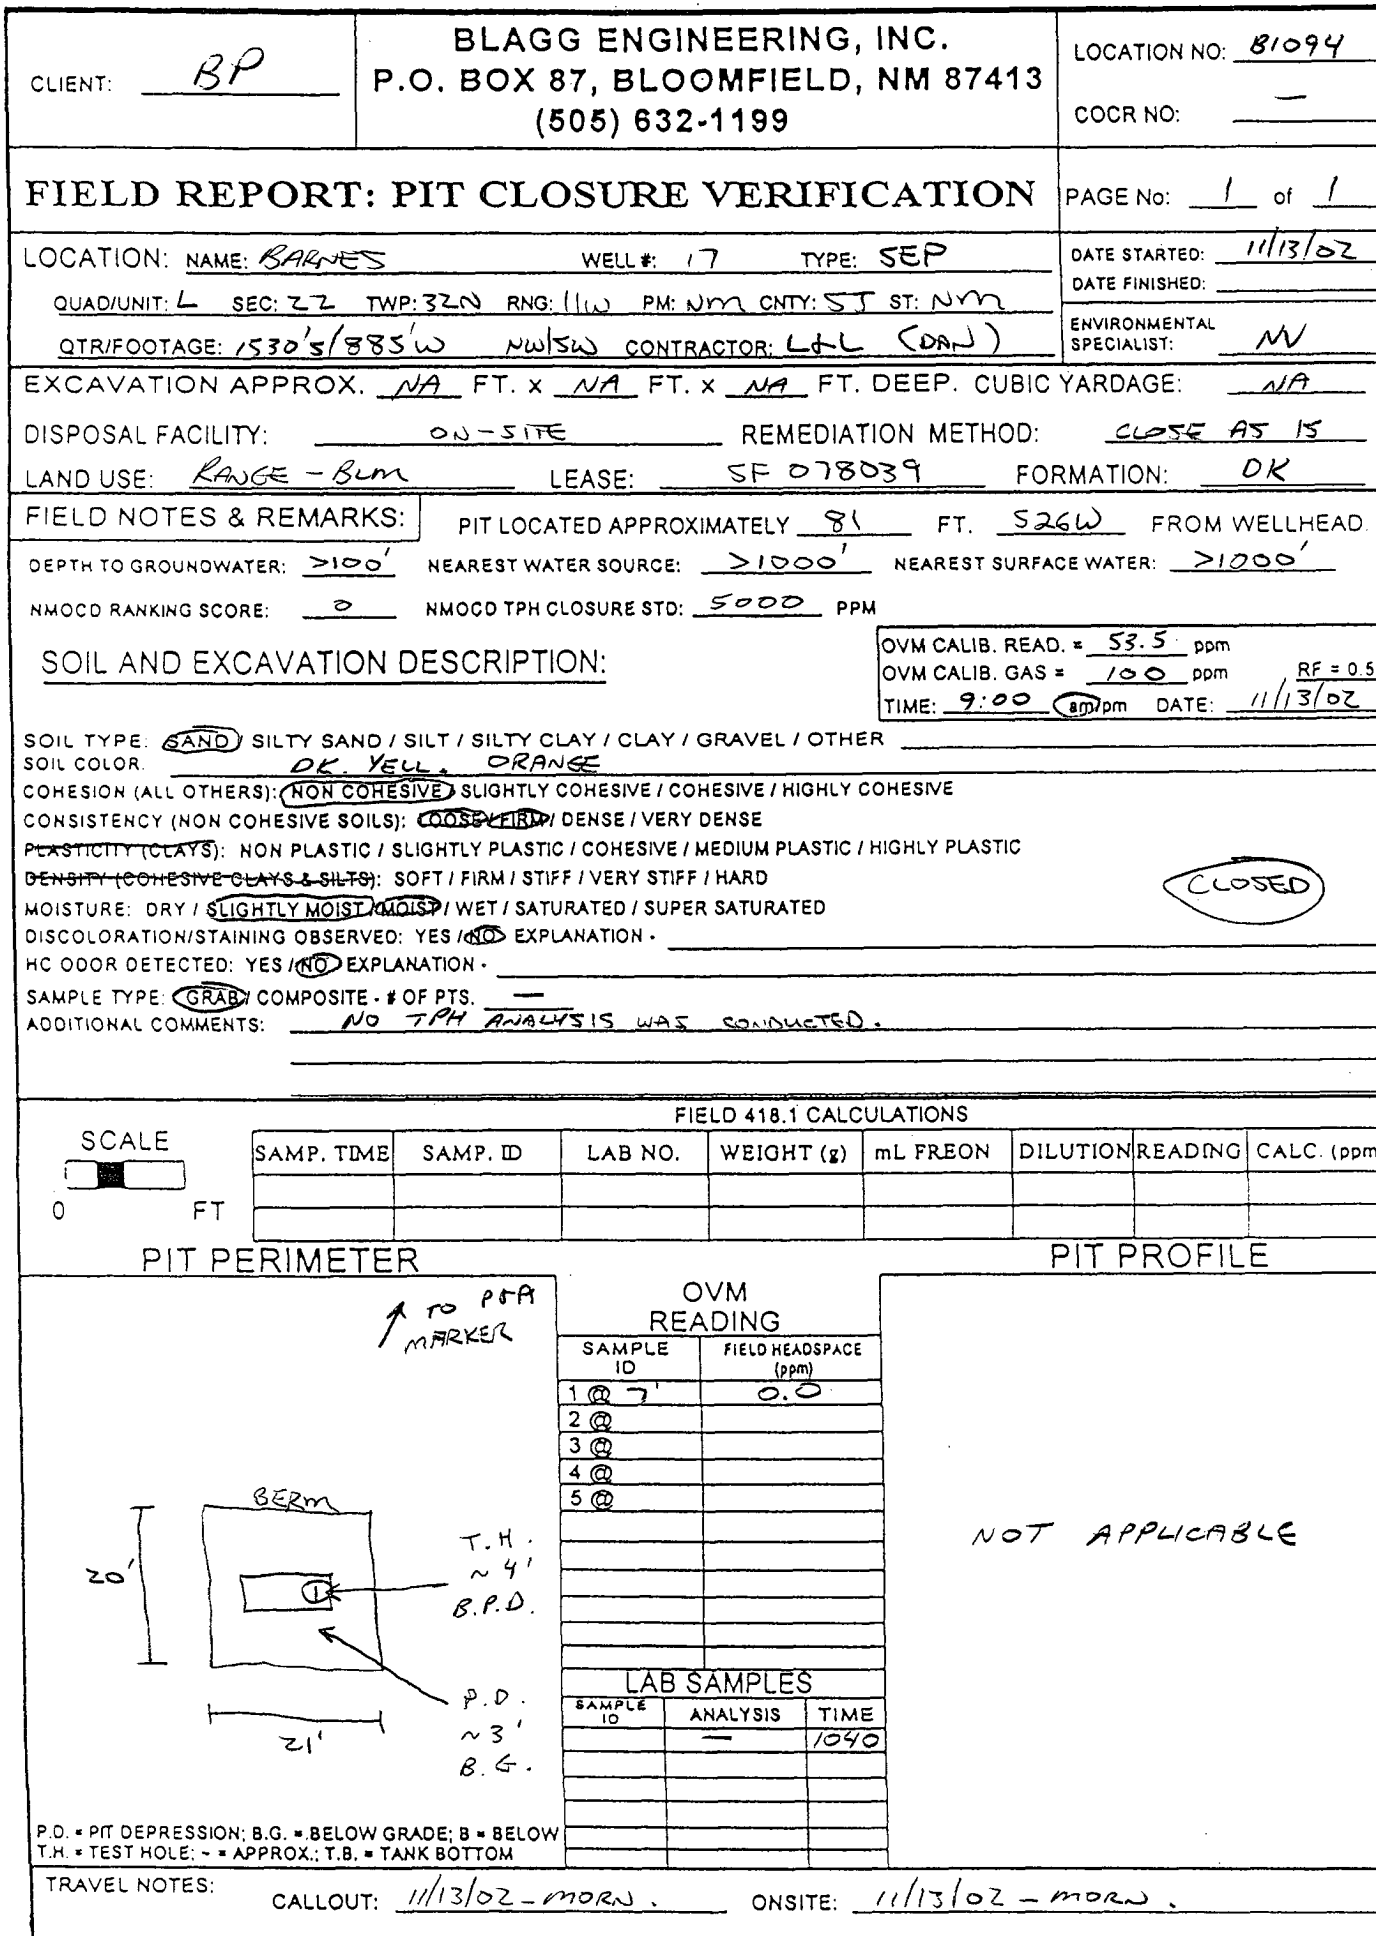 CLIENT: BP
BLAGG ENGINEERING, INC.
P.O. BOX 87, BLOOMFIELD, NM 87413
(505) 632-1199
LOCATION NO: B1094
COCR NO: —
FIELD REPORT: PIT CLOSURE VERIFICATION
PAGE No: 1 of 1
LOCATION: NAME: BARNES WELL #: 17 TYPE: SEP
QUAD/UNIT: L SEC: 22 TWP: 32N RNG: 11W PM: NM CNTY: SJ ST: NM
QTR/FOOTAGE: 1530'S/885'W NW/SW CONTRACTOR: L&L (DAN)
DATE STARTED: 11/13/02
DATE FINISHED:
ENVIRONMENTAL
SPECIALIST: NV
EXCAVATION APPROX. NA FT. x NA FT. x NA FT. DEEP. CUBIC YARDAGE: NA
DISPOSAL FACILITY: ON-SITE REMEDIATION METHOD: CLOSE AS IS
LAND USE: RANGE - BLM LEASE: SF 078039 FORMATION: DK
FIELD NOTES & REMARKS: PIT LOCATED APPROXIMATELY 81 FT. S26W FROM WELLHEAD.
DEPTH TO GROUNDWATER: >100' NEAREST WATER SOURCE: >1000' NEAREST SURFACE WATER: >1000'
NMOCD RANKING SCORE: 0 NMOCD TPH CLOSURE STD: 5000 PPM
SOIL AND EXCAVATION DESCRIPTION:
OVM CALIB. READ. = 53.5 ppm
OVM CALIB. GAS = 100 ppm RF = 0.5
TIME: 9:00 am/pm DATE: 11/13/02
SOIL TYPE: SAND / SILTY SAND / SILT / SILTY CLAY / CLAY / GRAVEL / OTHER
SOIL COLOR: DK. YELL. ORANGE
COHESION (ALL OTHERS): NON COHESIVE / SLIGHTLY COHESIVE / COHESIVE / HIGHLY COHESIVE
CONSISTENCY (NON COHESIVE SOILS): LOOSE / FIRM / DENSE / VERY DENSE
PLASTICITY (CLAYS): NON PLASTIC / SLIGHTLY PLASTIC / COHESIVE / MEDIUM PLASTIC / HIGHLY PLASTIC
DENSITY (COHESIVE CLAYS & SILTS): SOFT / FIRM / STIFF / VERY STIFF / HARD
CLOSED
MOISTURE: DRY / SLIGHTLY MOIST / MOIST / WET / SATURATED / SUPER SATURATED
DISCOLORATION/STAINING OBSERVED: YES / NO EXPLANATION -
HC ODOR DETECTED: YES / NO EXPLANATION -
SAMPLE TYPE: GRAB / COMPOSITE - # OF PTS. —
ADDITIONAL COMMENTS: NO TPH ANALYSIS WAS CONDUCTED.
FIELD 418.1 CALCULATIONS
SCALE
0 FT
SAMP. TIME SAMP. ID LAB NO. WEIGHT (g) mL FREON DILUTION READING CALC. (ppm
PIT PERIMETER
PIT PROFILE
TO P&A
MARKER
OVM
READING
SAMPLE
ID
FIELD HEADSPACE
(ppm)
1 @ 7' 0.0
2 @
3 @
4 @
5 @
BERM
20'
1
T.H.
~ 4'
B.P.D.
21'
P.D.
~ 3'
B.G.
NOT APPLICABLE
LAB SAMPLES
SAMPLE
ID
ANALYSIS TIME
— 1040
P.D. = PIT DEPRESSION; B.G. = BELOW GRADE; B = BELOW
T.H. = TEST HOLE; ~ = APPROX.; T.B. = TANK BOTTOM
TRAVEL NOTES:
CALLOUT: 11/13/02 - MORN. ONSITE: 11/13/02 - MORN.